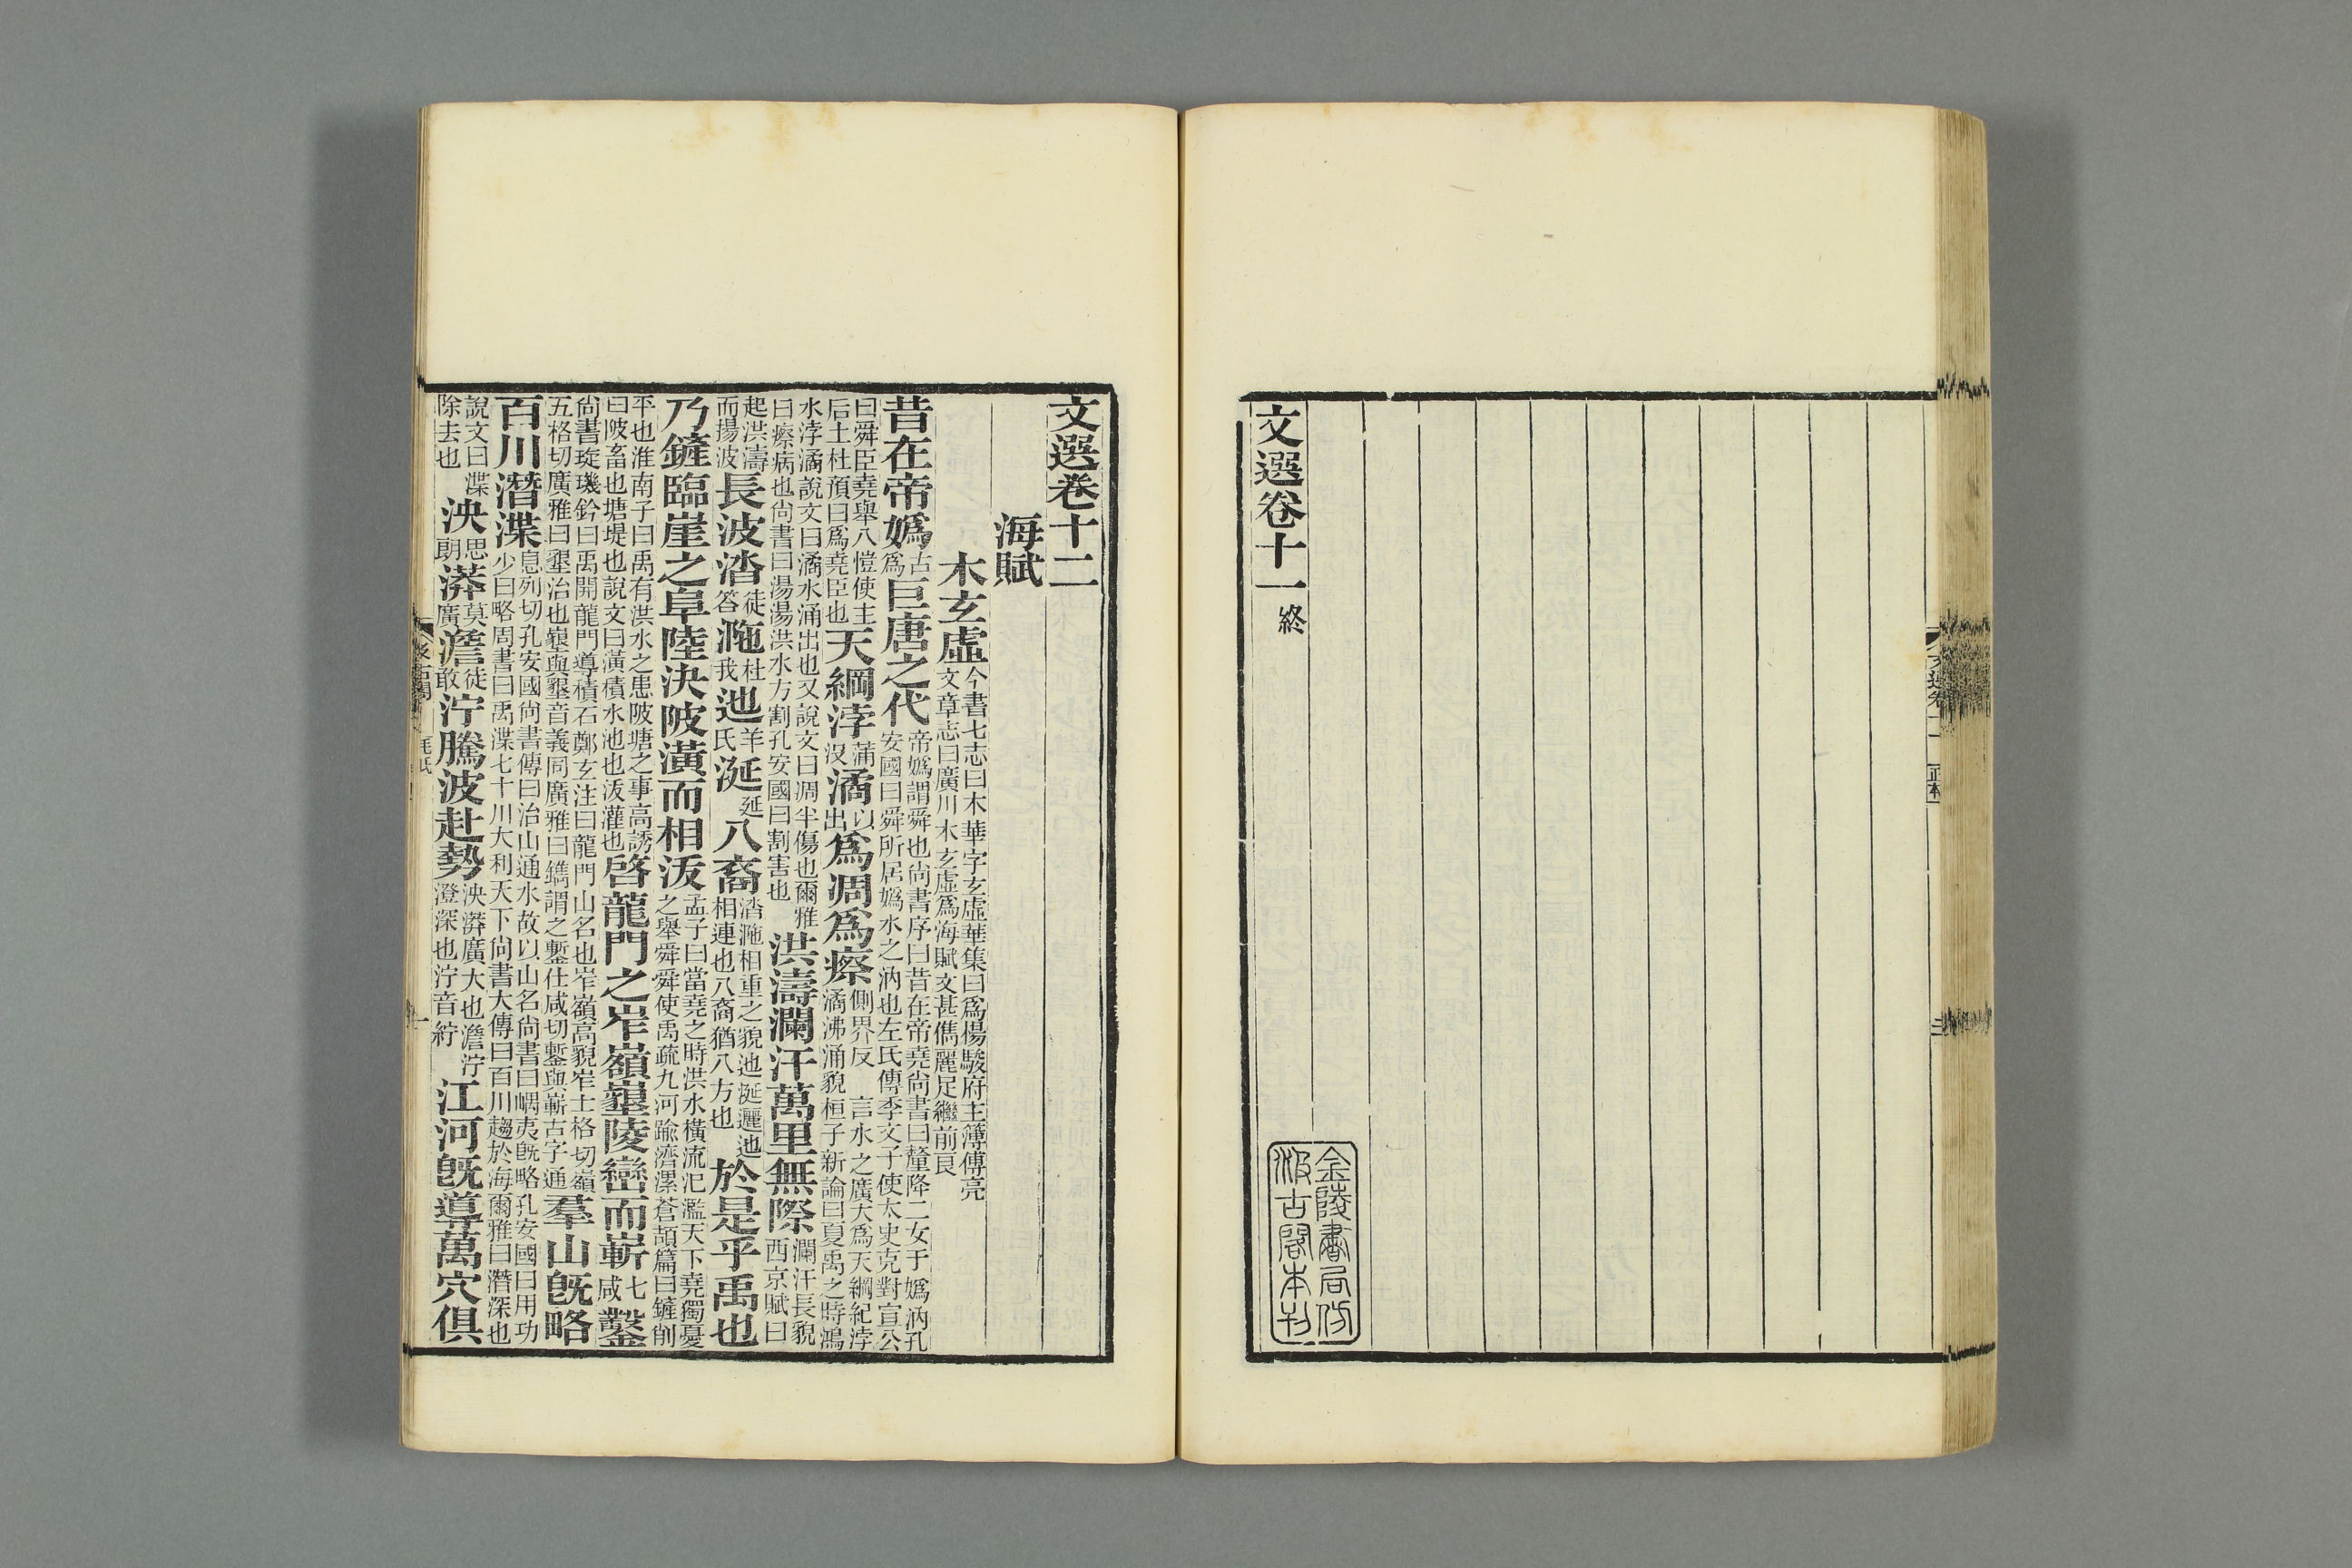 文選卷十一 終
金陵書局仿
汲古閣本刊
文選卷十二
海賦
木玄虛 今書七志曰木華字玄虛華集曰爲楊駿府主簿傅亮文章志曰廣川木玄虛爲海賦文甚儁麗足繼前良
昔在帝嬀古爲巨唐之代帝嬀謂舜也尙書序曰昔在帝堯尙書曰釐降二女于嬀汭孔安國曰舜所居嬀水之汭也左氏傳季文子使太史克對宣公
曰舜臣堯舉八愷使主后土杜預曰爲堯臣也天綱浡蒲沒潏以出爲凋爲瘵側界反 言水之廣大爲天綱紀浡潏沸涌貌桓子新論曰夏禹之時鴻
水浡潏說文曰潏水涌出也又說文曰凋半傷也爾雅曰瘵病也尙書曰湯湯洪水方割孔安國曰割害也洪濤瀾汗萬里無際瀾汗長貌西京賦曰
起洪濤而揚波長波涾徒答㴰杜我迆羊氏涎延八裔涾㴰相重之貌迆涎邐迆相連也八裔猶八方也於是乎禹也
乃鏟臨崖之阜陸決陂潢而相沷孟子曰當堯之時洪水橫流氾濫天下堯獨憂之舉舜舜使禹疏九河踰濟漯蒼頡篇曰鏟削
平也淮南子曰禹有洪水之患陂塘之事高誘曰陂畜也塘堤也說文曰潢積水池也沷灌也啓龍門之岝嶺墾陵巒而嶄七咸鑿
尙書琁璣鈐曰禹開龍門導積石鄭玄注曰龍門山名也岝嶺高貌岝士格切嶺五格切廣雅曰墾治也墾與墾音義同廣雅曰鐫謂之鏨仕咸切鏨與嶄古字通羣山旣略
百川潛渫息列切孔安國尙書傳曰治山通水故以山名尙書曰嵎夷旣略孔安國曰用功少曰略周書曰禹渫七十川大利天下尙書大傳曰百川趨於海爾雅曰潛深也
說文曰渫除去也泱思朗漭莫廣澹徒敢泞騰波赴勢泱漭廣大也澹泞澄深也泞音紵江河旣導萬穴俱